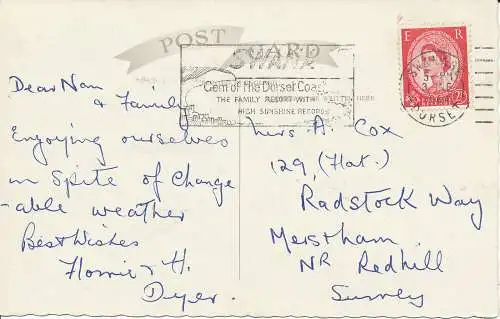 POST CARD
SWANAGE
Gem of the Dorset Coast
THE FAMILY RESORT WITH
HIGH SUNSHINE RECORDS
E R
Dear Nan
& Family
Enjoying ourselves
in Spite of Change
-able weather
Best Wishes
Florrie & H.
Dyer.
Mrs A. Cox
129, (Flat.)
Radstock Way
Merstham
NR Redhill
Surrey